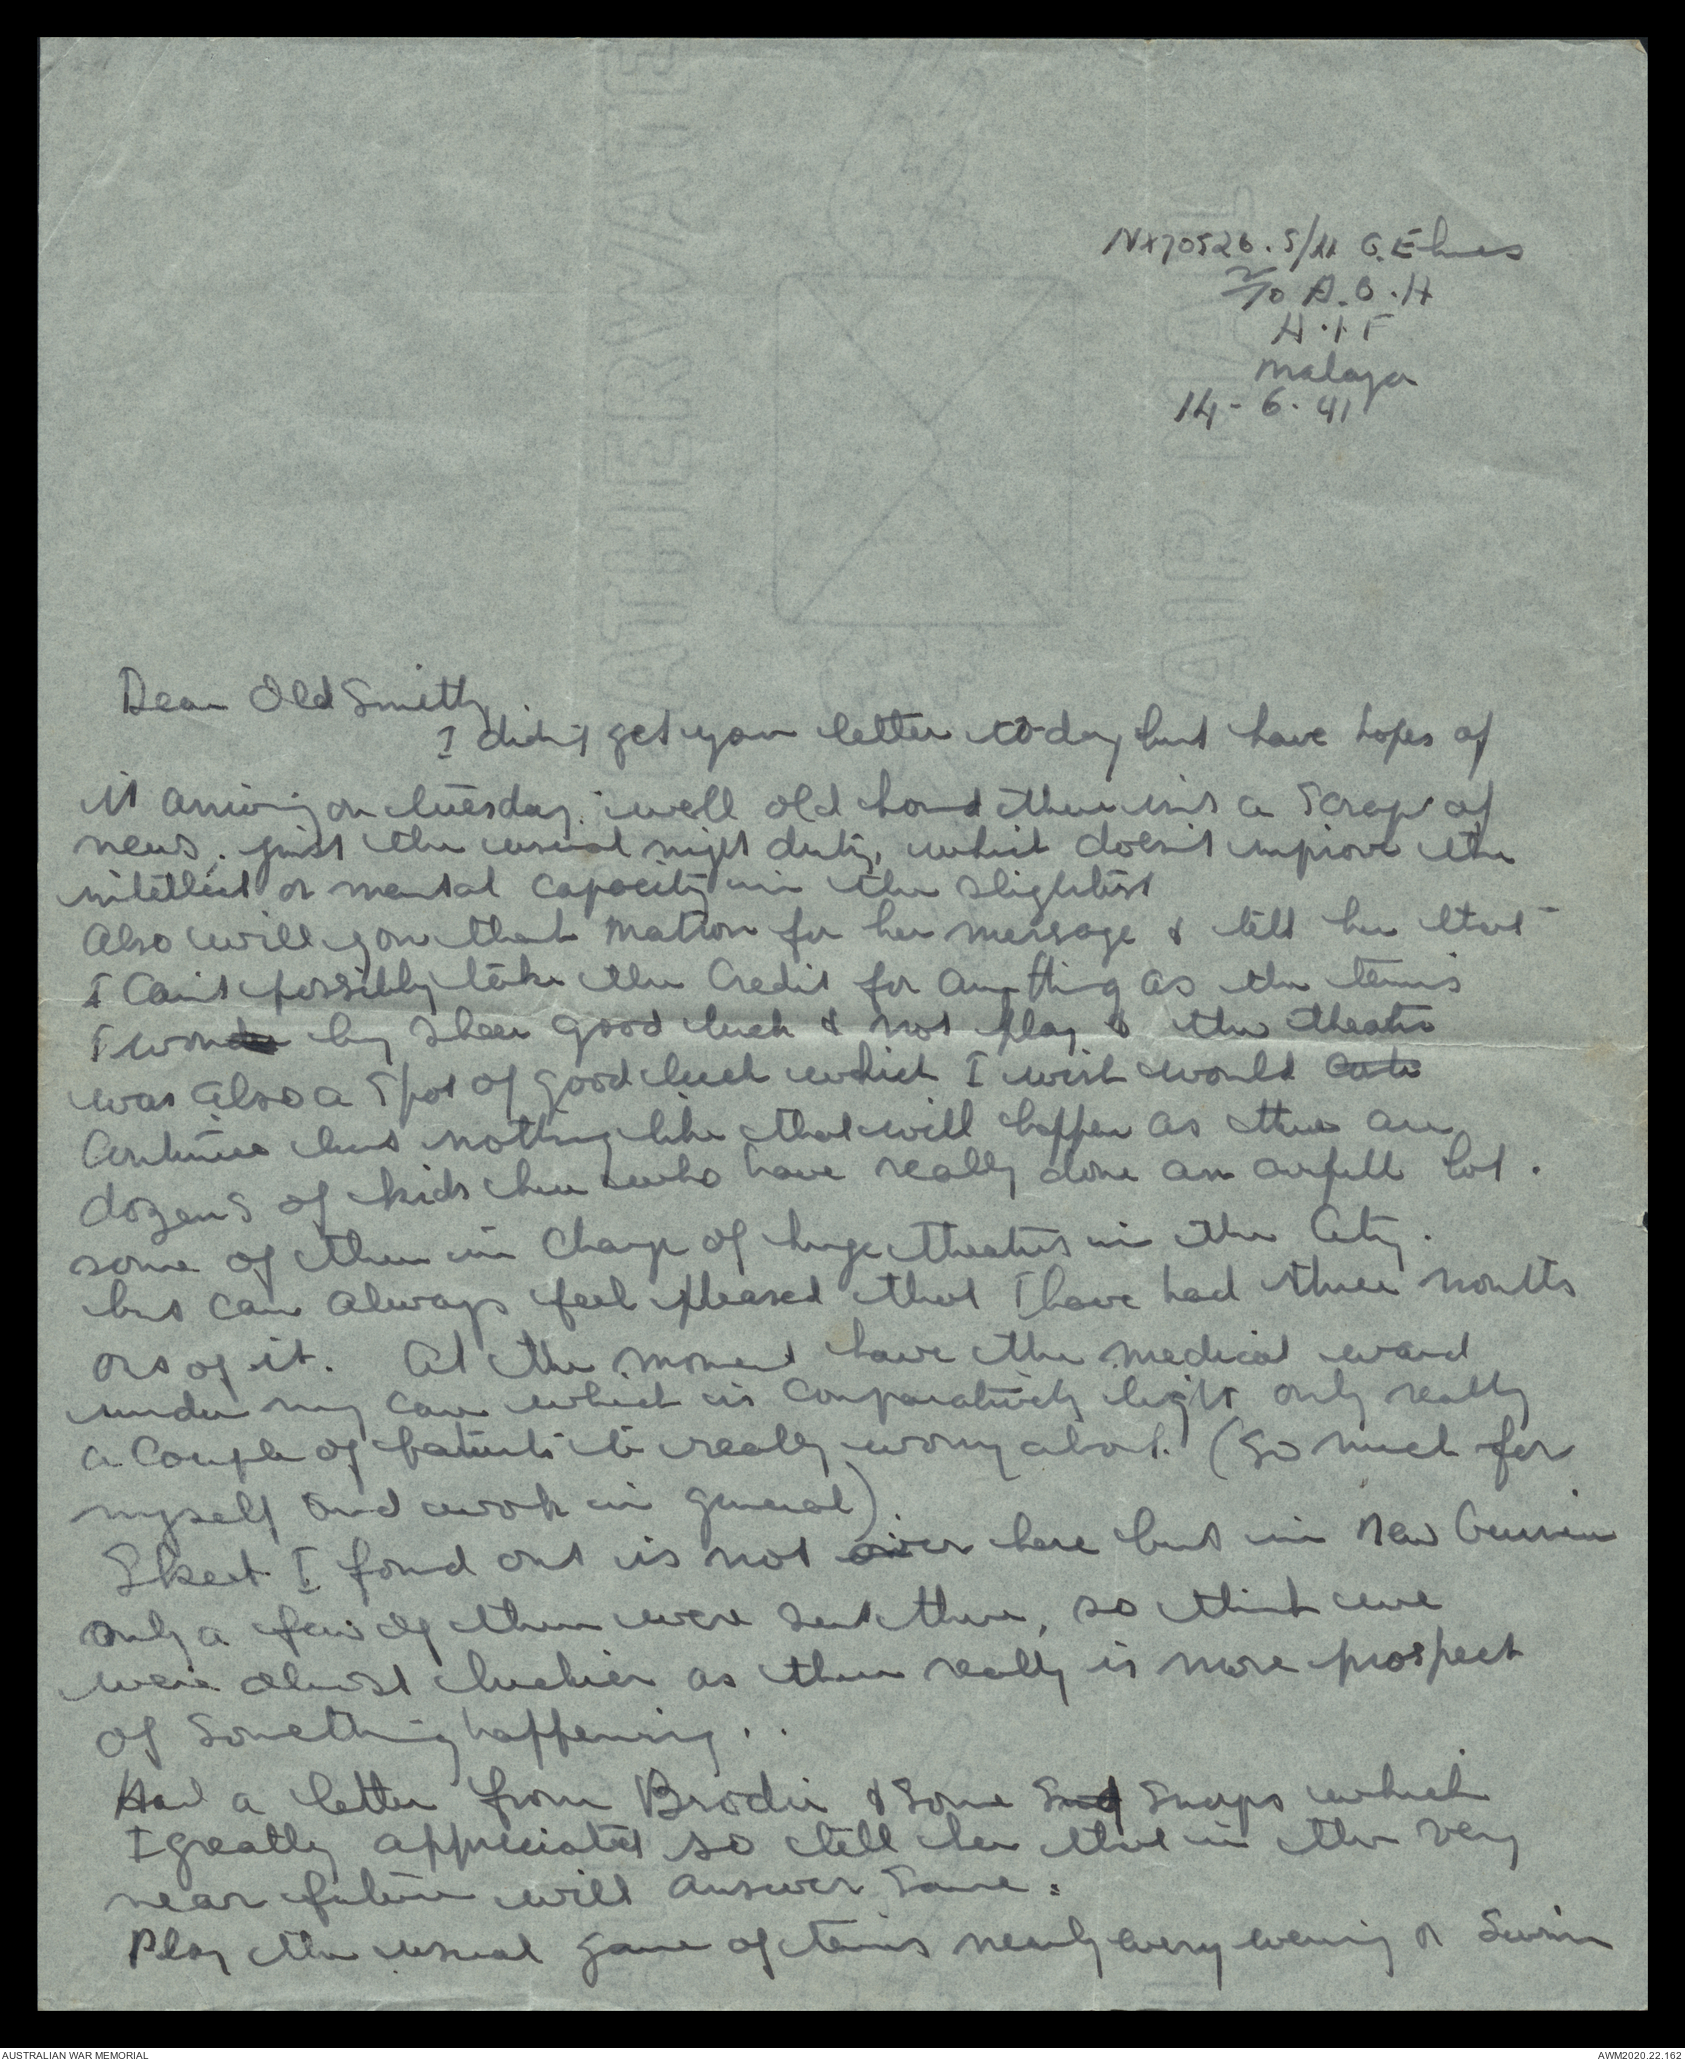 NX70526. S/N D. Elmes
2/10 A.G.H
A.I.F
Malaya
14-6-41
Dear Old Smithy,
I didn't get your letter today but have hopes of
it arriving on Tuesday. well old horse there isn't a scrap of
news. just the usual night duty, which doesn't improve the
intellect or mental capacity in the slightest
Also will you thank Matron for her message & tell her that
I can't possibly take the credit for anything as the tennis
I won by sheer good luck & not play & the theatre
was also a spot of good luck which I wish would
continue but nothing like that will happen as there are
dozens of kids here who have really done an awfull lot.
some of them in charge of huge theatres in the City.
but can always feel pleased that I have had three months
or so of it. At the moment have the medical ward
under my care which is comparatively light only really
a couple of patients to really worry about. (So much for
myself and work in general)
Skeet I found out is not over here but in New Guinea
only a few of them were sent there, so think we
were almost luckier as there really is more prospect
of something happening..
Had a letter from Brodie & some snaps which
I greatly appreciated so tell her that in the very
near future will answer same.
Play the usual game of tennis nearly every evening or swim
WEATHERWAVE
AIR MAIL
AUSTRALIAN WAR MEMORIAL
AWM2020.22.162